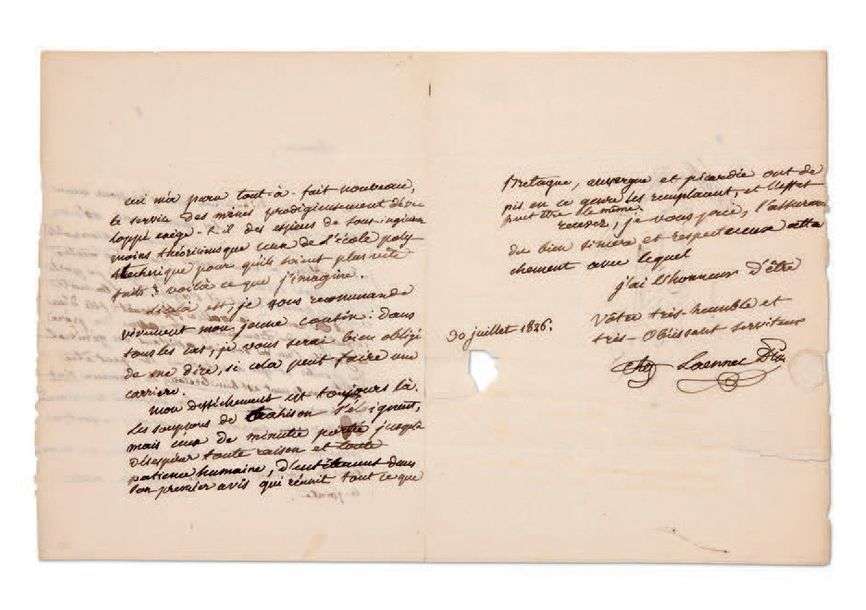 qui m'a paru tout-à-fait nouveau,
le service des mines prodigieusement déve
loppé exige-t-il des espèces de sous-ingénieurs
moins théoriciens que ceux de l'école poly
technique pour qu'ils soient plus vite
faits? voilà ce que j'imagine.
Si cela est je vous recommande
vivement mon jeune cousin: dans
tous les cas, je vous serai bien obligé
de me dire, si cela peut faire une
carrière.
Mon desséchement est toujours là.
les soupçons de trahison s'éloignent,
mais ceux de minutie portée jusqu'à
désespérer toute raison et toute
patience humaine, dans
son premier avis qui réunit tout ce que
Bretagne, auvergne et picardie ont de
pis en ce genre les remplacent, et l'effet
peut être le même.
recevez, je vous prie, l'assurance
du bien sincère et respectueux atta
chement avec lequel
j'ai l'honneur d'être
Votre très-humble et
très-obéissant serviteur
30 juillet 1826.
Laennec